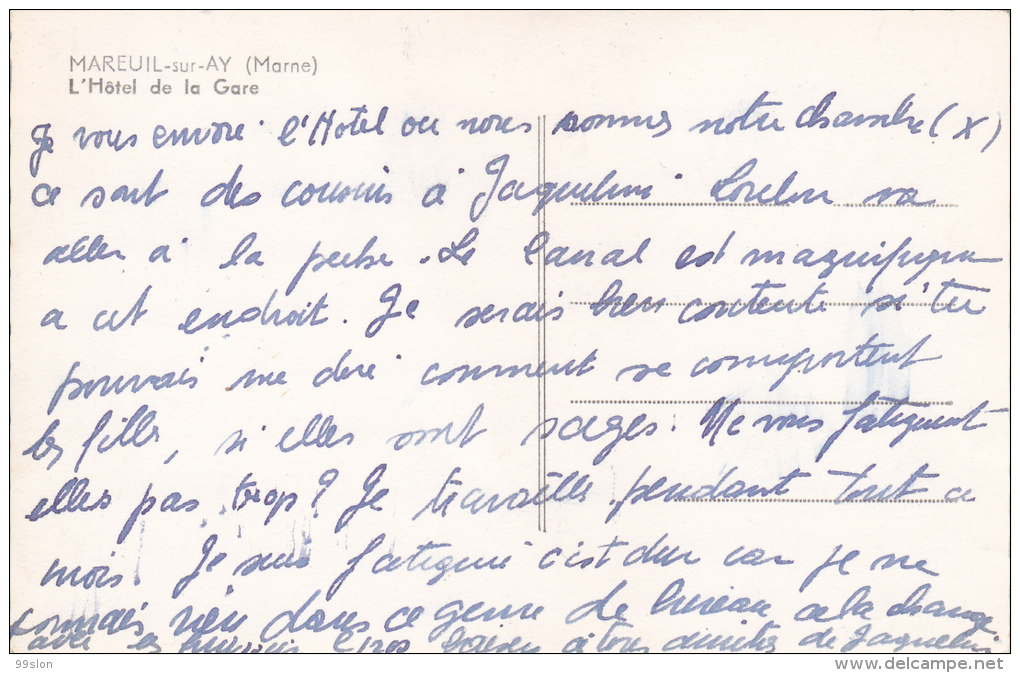 MAREUIL-sur-AY (Marne)
L'Hôtel de la Gare
Je vous envoie l'Hotel ou nous sommes notre chambre (x)
ce sont des cousins à Jaqueline va
aller à la peche. Le Canal est magnifique
a cet endroit. Je serais bien contente si tu
pouvais me dire comment se comportent
les filles, si elles sont sages. Ne vous fatiguent
elles pas trop? Je travaille pendant tout ce
mois. Je suis fatiguée c'est dur car je ne
connais rien dans ce genre de bureau cela change
avec Gros à tous amitiés de Jaqueline
99slon
www.delcampe.net